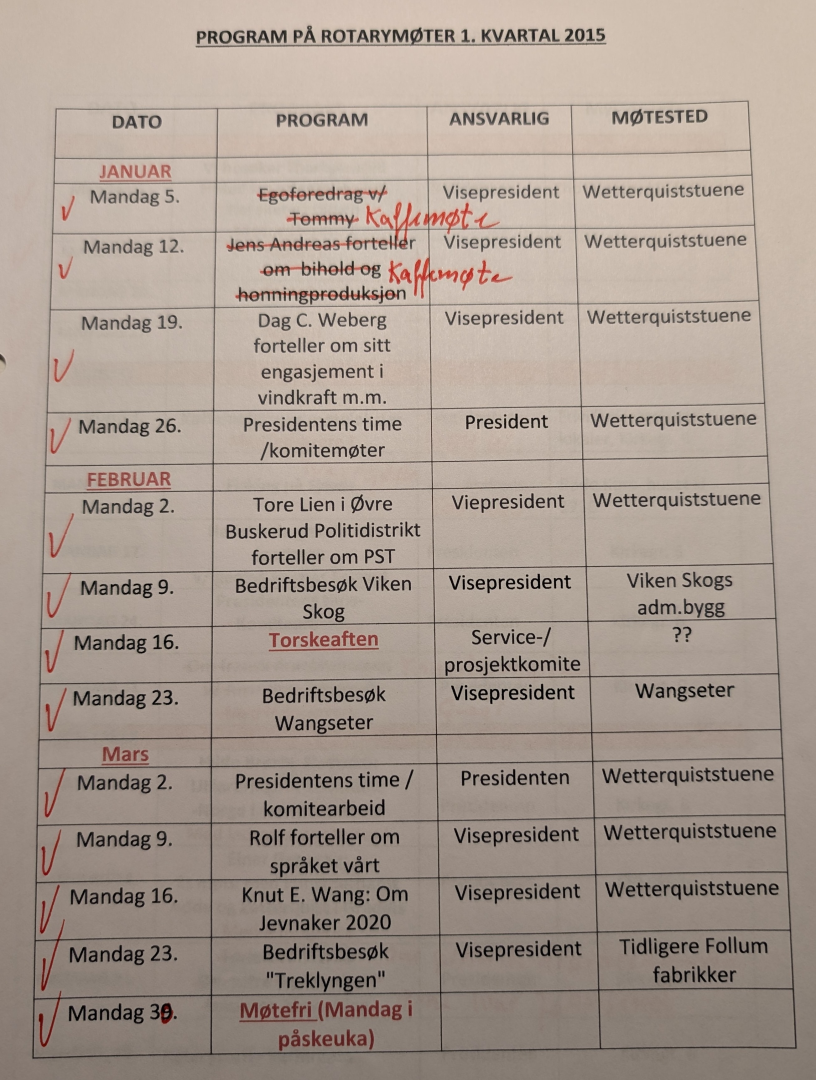 PROGRAM PÅ ROTARYMØTER 1. KVARTAL 2015
DATO PROGRAM ANSVARLIG MØTESTED
JANUAR
Mandag 5. Egoforedrag v/ Visepresident Wetterquiststuene
Tommy Kaffemøte
Mandag 12. Jens Andreas forteller Visepresident Wetterquiststuene
om bihold og Kaffemøte
honningproduksjon
Mandag 19. Dag C. Weberg Visepresident Wetterquiststuene
forteller om sitt
engasjement i
vindkraft m.m.
Mandag 26. Presidentens time President Wetterquiststuene
/komitemøter
FEBRUAR
Mandag 2. Tore Lien i Øvre Viepresident Wetterquiststuene
Buskerud Politidistrikt
forteller om PST
Mandag 9. Bedriftsbesøk Viken Visepresident Viken Skogs
Skog adm.bygg
Mandag 16. Torskeaften Service-/ ??
prosjektkomite
Mandag 23. Bedriftsbesøk Visepresident Wangseter
Wangseter
Mars
Mandag 2. Presidentens time / Presidenten Wetterquiststuene
komitearbeid
Mandag 9. Rolf forteller om Visepresident Wetterquiststuene
språket vårt
Mandag 16. Knut E. Wang: Om Visepresident Wetterquiststuene
Jevnaker 2020
Mandag 23. Bedriftsbesøk Visepresident Tidligere Follum
"Treklyngen" fabrikker
Mandag 30. Møtefri (Mandag i
påskeuka)